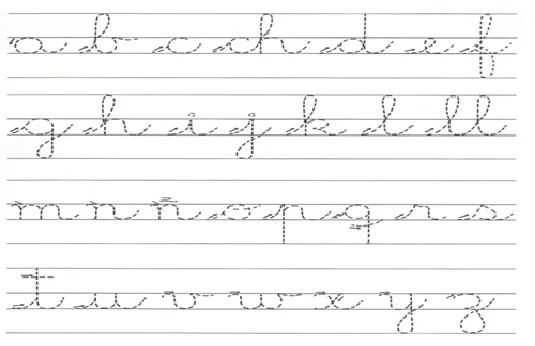 a b c ch d e f
g h i j k l ll
m n ñ o p q r s
t u v w x y z